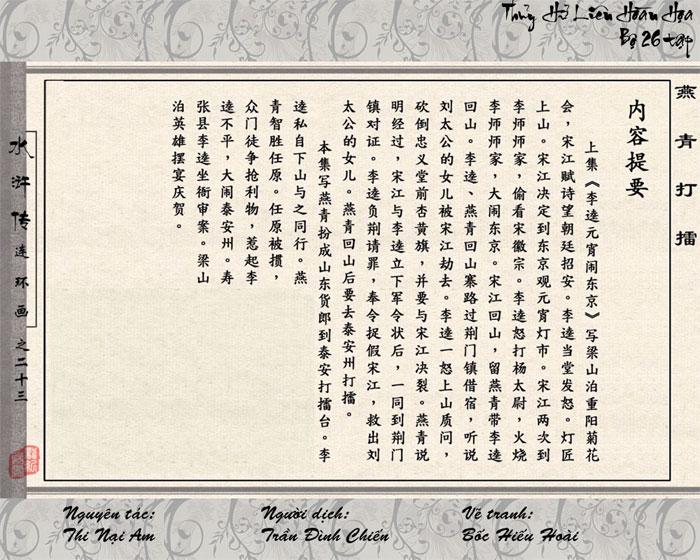 Thủy Hử Liên Hoàn Họa
Bộ 26 tập
燕青打擂
内容提要
上集《李逵元宵闹东京》写梁山泊重阳菊花
会，宋江赋诗望朝廷招安。李逵当堂发怒。灯匠
上山。宋江决定到东京观元宵灯市。宋江两次到
李师师家，偷看宋徽宗。李逵怒打杨太尉，火烧
李师师家，大闹东京。宋江回山，留燕青带李逵
回山。李逵、燕青回山寨路过荆门镇借宿，听说
刘太公的女儿被宋江劫去。李逵一怒上山质问，
砍倒忠义堂前杏黄旗，并要与宋江决裂。燕青说
明经过，宋江与李逵立下军令状后，一同到荆门
镇对证。李逵负荆请罪，奉令捉假宋江，救出刘
太公的女儿。燕青回山后要去泰安州打擂。
本集写燕青扮成山东货郎到泰安打擂台。李
逵私自下山与之同行。燕
青智胜任原。任原被掼，
众门徒争抢利物，惹起李
逵不平，大闹泰安州。寿
张县李逵坐衙审案。梁山
泊英雄摆宴庆贺。
水浒传连环画之二十三
Nguyên tác:
Thi Nại Am
Người dịch:
Trần Đình Chiến
Vẽ tranh:
Bốc Hiếu Hoài